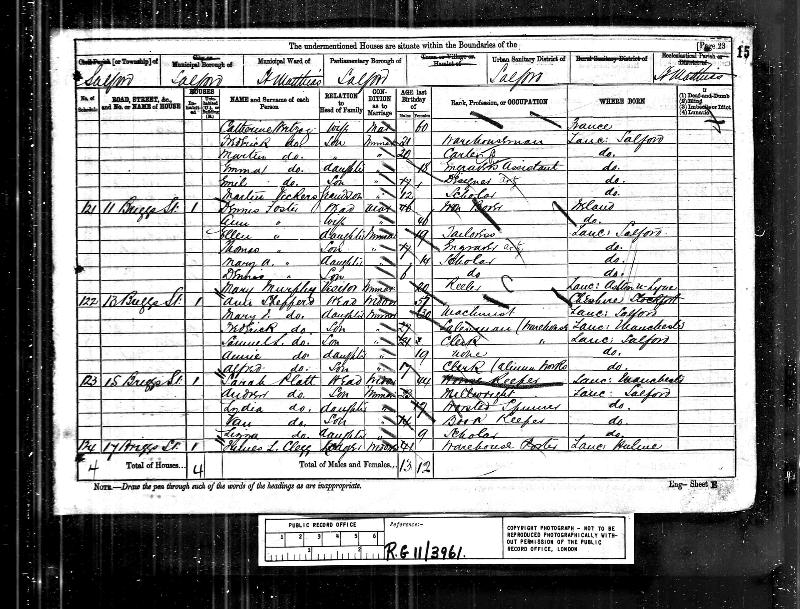 The undermentioned Houses are situate within the Boundaries of the
[Page 23
15
Civil Parish [or Township] of
Salford
City or Municipal Borough of
Salford
Municipal Ward of
St Matthias
Parliamentary Borough of
Salford
Town or Village or Hamlet of
Urban Sanitary District of
Salford
Rural Sanitary District of
Ecclesiastical Parish or District of
St Matthias
No. of Schedule
ROAD, STREET, &c., and No. or NAME of HOUSE
HOUSES
NAME and Surname of each Person
RELATION to Head of Family
CONDITION as to Marriage
AGE last Birthday of
Males
Females
Rank, Profession, or OCCUPATION
WHERE BORN
If
(1) Deaf-and-Dumb
(2) Blind
(3) Imbecile or Idiot
(4) Lunatic
Catherine Wife Mar 60 France
Fredrick do. Son Unmar 21 Warehouseman Lanc: Salford
Martin do. " " 20 Carter do.
Emma do. daughter " 18 Assistant do.
Emil do. Son " Designer do.
Martin Vickers Grandson 12 Scholar do.
121 11 Briggs St. 1 Dennis Foster Head Mar Ireland
Ann " Wife " do.
Ellen " daughter Unmar 19 Tailoress Lanc: Salford
Thomas " Son " 17 Engraver do.
Mary A. " daughter " 14 Scholar do.
Dennis " Son " 6 do do.
Mary Murphy Visitor Unmar 20 Lanc: Ashton-u-Lyne
122 13 Briggs St. 1 Ann Shepperd Head Widow 57 Cheshire Stockport
Mary E. do. daughter Unmar 30 Machinist Lanc: Salford
Fredrick do. Son " 27 Salesman (Warehouse Lanc: Manchester
Samuel L. do. Son " 21 Clerk " Lanc: Salford
Annie do. daughter " 19 none do.
Alfred do. Son " 17 Clerk do.
123 15 Briggs St. 1 Sarah Platt Head Widow 44 House Keeper Lanc: Manchester
Andrew do. Son Unmar 22 Millwright Lanc: Salford
Lydia do. daughter " Worsted Spinner do.
do. Son " Book Keeper do.
do. daughter " 9 Scholar do.
124 17 Briggs St. 1 L. Clegg Lodger 41 Warehouse Porter Lanc: Hulme
4 Total of Houses... 4
Total of Males and Females... 13 12
NOTE.—Draw the pen through such of the words of the headings as are inappropriate.
Eng— Sheet E
PUBLIC RECORD OFFICE
1 2 3 4 5 6
1 2
Reference:-
R.G 11/3961.
COPYRIGHT PHOTOGRAPH - NOT TO BE
REPRODUCED PHOTOGRAPHICALLY WITH-
OUT PERMISSION OF THE PUBLIC
RECORD OFFICE, LONDON